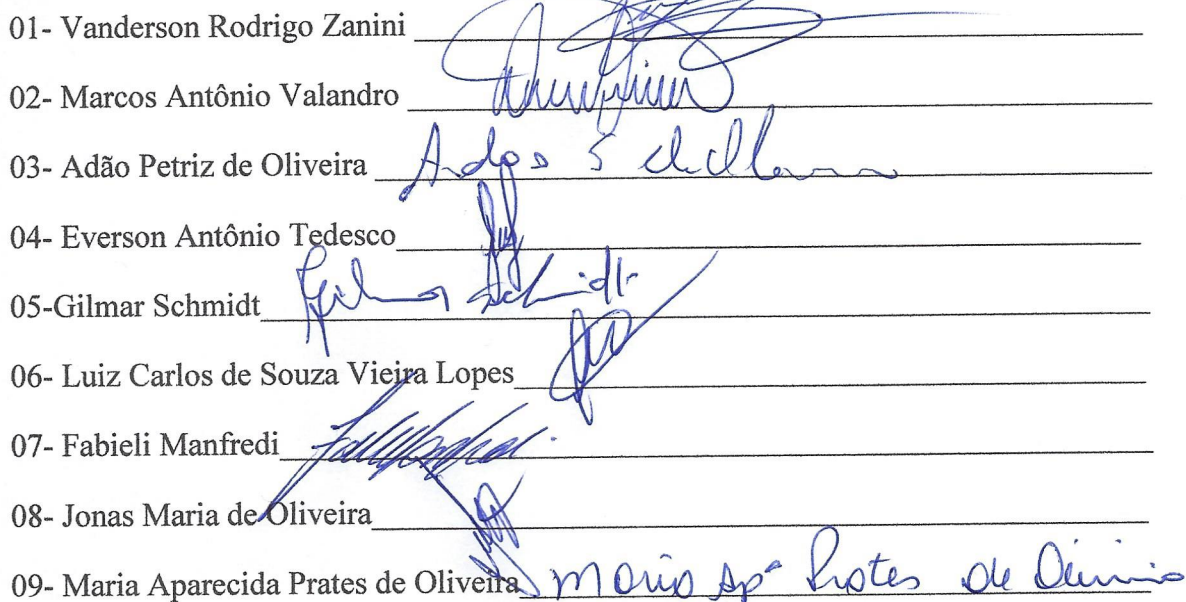 01- Vanderson Rodrigo Zanini
02- Marcos Antônio Valandro
03- Adão Petriz de Oliveira
04- Everson Antônio Tedesco
05-Gilmar Schmidt Gilmar Schmidt
06- Luiz Carlos de Souza Vieira Lopes
07- Fabieli Manfredi
08- Jonas Maria de Oliveira
09- Maria Aparecida Prates de Oliveira Maria Apª Prates de